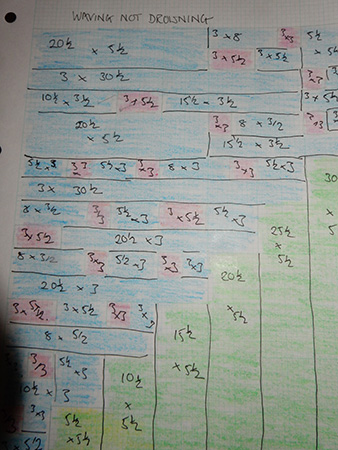 WAVING NOT DROWNING
20½ × 5½ 3 × 8 3×3 5½
3 × 5½ 3 × 5½ × 5½
3 × 30½ 3×3
10½ × 3½ 3 × 5½ 15½ × 3½ 3 × 5½
20½ 3×3 8 × 3½ 3×3
× 5½ 15½ × 3½
5½ × 3 3×3 5½ × 3 3×3 8 × 3 3×3 5½ × 3
3 × 30½ 30
8 × 3½ 3/3 5½ × 3 3 × 5½ 5½ × 3 ×
3 × 5½ 20½ × 3 25½ 5
8 × 3½ 3×3 5½ × 3 3×3 3×3 ×
20½ × 3 20½ 5½
3 × 5½ 3 × 5½ 3×3 3×3 × 5½
8 × 5½ 15½
3/3 5½ × 3 × 5½
10½ × 3 10½
3×3 5½ ×
× 5½ × 5½ 5½